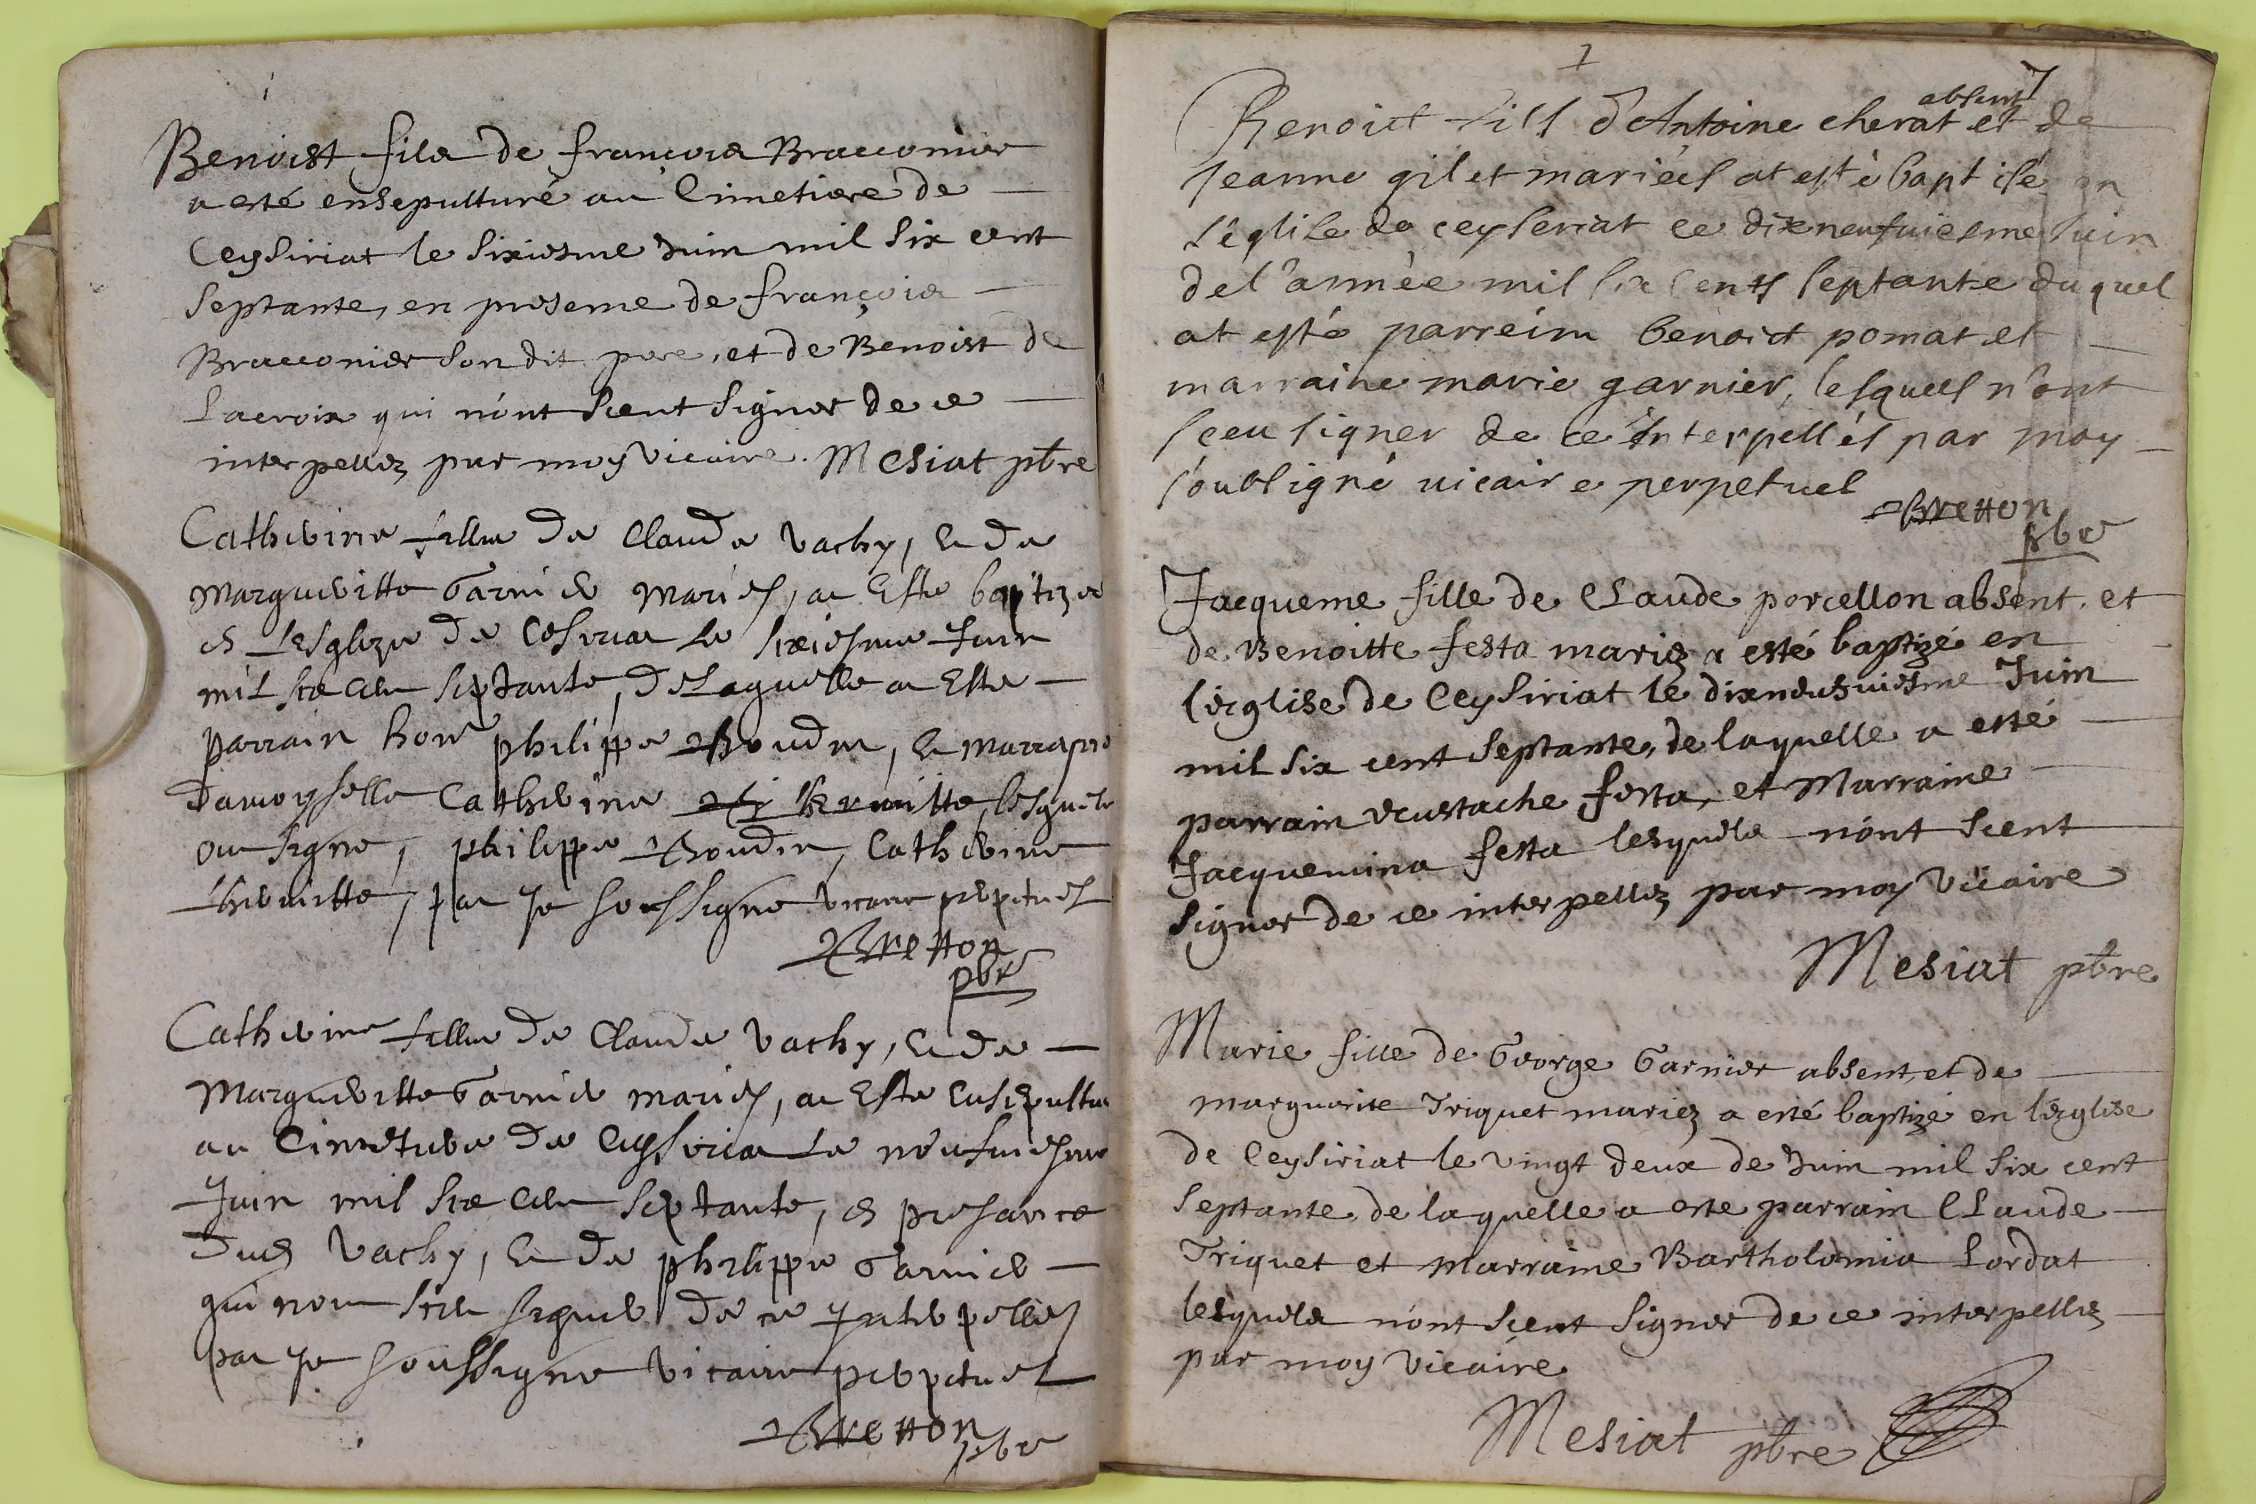 Benoist fils de françois Bracconier
a esté ensepulturé au Cimetiere de
Ceysiriat le sixiesme Juin mil six cent
septante, en presence de françois
Bracconier son dit pere, et de Benoist de
Lacroix qui n'ont sceut signer de ce
interpellez par moy vicaire. Mesiat pbre
Catherine fille de Claude Vachy, et de
Margueritte Garnier mariés, at esté baptizée
en Lesglize de le sixiesme Juin
mil six cent septante, de Laquelle at esté
parrain honr philippe, et marraine
damoyselle Catherine lesquels
ont signe, philippe, Catherine
par je soussigne vicaire perpetuel
Bretton
pbr
Catherine fille de Claude Vachy, et de
Margueritte Garnier mariés, at esté ensepulturee
au Cimetiere de le neufuiesme
Juin mil six cent septante, en presance
dud Vachy, et de philippe Garnier
qui nont sceu signer de ce Interpellés
par je soussigne vicaire perpetuel
Bretton
pbr
1
absent
Benoict fils d'Antoine cherat et de
Jeanne gilet mariéés at esté baptisé en
l'église de ceyseriat ce dixneufuiesme Juin
de l'année mil six cents septante duquel
at esté parreim benoict pomat et
marraine marie garnier, lesquels n'ont
sceu signer de ce interpellés par moy
soubsigné vicaire perpetuel
Bretton
pbr
Jacqueme fille de Claude porcellon absent, et
de Benoitte festa mariez a esté baptizé en
l'esglise de Ceysiriat le dixneufuiesme Juin
mil six cent septante, de laquelle a esté
parrain eustache festa, et Marraine
Jacquemina festa lesquels n'ont sceut
signer de ce interpellez par moy vicaire
Mesiat pbre
Marie fille de George Garnier absent, et de
marguerite Triquet mariez a esté baptizé en l'esglise
de Ceysiriat le vingt deux de Juin mil six cent
septante de laquelle a esté parrain Claude
Triquet et Marraine Bartholomia Lordat
lesquels n'ont sceut signer de ce interpellez
par moy vicaire
Mesiat pbre